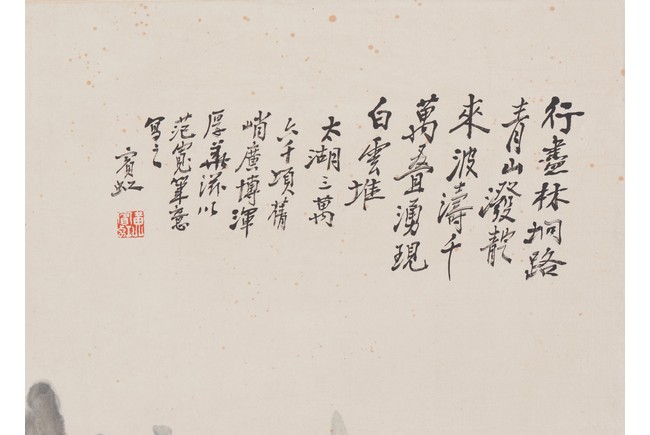 行盡林坰路
青山潑靛
來波濤千
萬疊湧現
白雲堆
太湖三萬
六千頃蒨
峭廣博渾
厚華滋以
范寬筆意
寫之
賓虹
黃賓虹